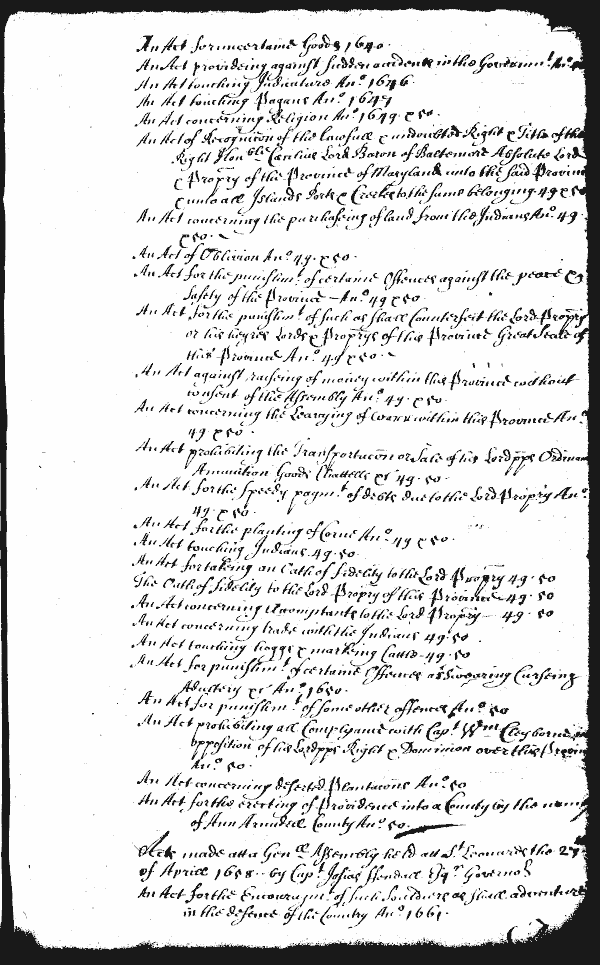 An Act for uncertaine Goods 1640.
An Act provideing against Sudden accidents in the Governmt. Ano.
An Act touching Judicature Ano. 1646.
An Act touching Pagans Ano. 1649
An Act concerning Religion Ano. 1649. & 50.
An Act of Recognicon of the lawfull & undoubted Right & Title of the
Right Honble Caecilius Lord Baron of Baltemore Absolute Lord
& Propry of the Province of Maryland unto the said Province
& unto all Islands Ports & Creekes to the same belonging. 49 & 50
An Act concerning the purchaseing of land from the Indians Ano. 49.
& 50.
An Act of Oblivion Ano. 49. & 50.
An Act for the punishmt. of certaine Offences against the peace &
Safety of the Province - Ano. 49 & 50.
An Act for the punishmt. of such as shall Counterfeit the Lord Proprys
or his heyres Lords & Proprys of this Province Great Seale of
this Province Ano. 49 & 50.
An Act against raiseing of money within this Province without
consent of the Assembly Ano. 49. & 50.
An Act concerning the Leavying of Warr within this Province Ano.
49 & 50.
An Act prohibiting the Transportacon or Sale of his Lordpps Ordinance
Amunition Goods Chattells &c. 49. 50.
An Act for the speedy paymt. of debts due to the Lord Propry Ano.
49. & 50.
An Act for the planting of Corne Ano. 49 & 50.
An Act touching Indians. 49. 50.
An Act for takeing an Oath of Fidelity to the Lord Propry 49. 50
The Oath of Fidelity to the Lord Propry of this Province 49. 50
An Act concerning Accomptants to the Lord Propry - 49. 50
An Act concerning trade with the Indians 49. 50.
An Act touching hoggs & markeing Cattle 49. 50.
An Act for punishmt. of certaine Offences as Swearing Curseing
Adultery &c. Ano. 1650.
An Act for punishmt. of some other offences Ano. 50
An Act prohibiting all Complyance with Capt. Wm Cleyborne in
opposition of his Lordpps Right & Dominion over this Province
Ano. 50.
An Act concerning deserted Plantacons Ano. 50
An Act for the erecting of Providence into a County by the name
of Ann Arundell County Ano. 50.
Acts made att a Genll. Assembly held att St. Leonards the 27
of Aprill 1658. by Capt. Josias Fendall Esqr. Governor
An Act for the Encouragmt. of such Souldiers as shall adventure
in the defence of the Country Ano. 1661.